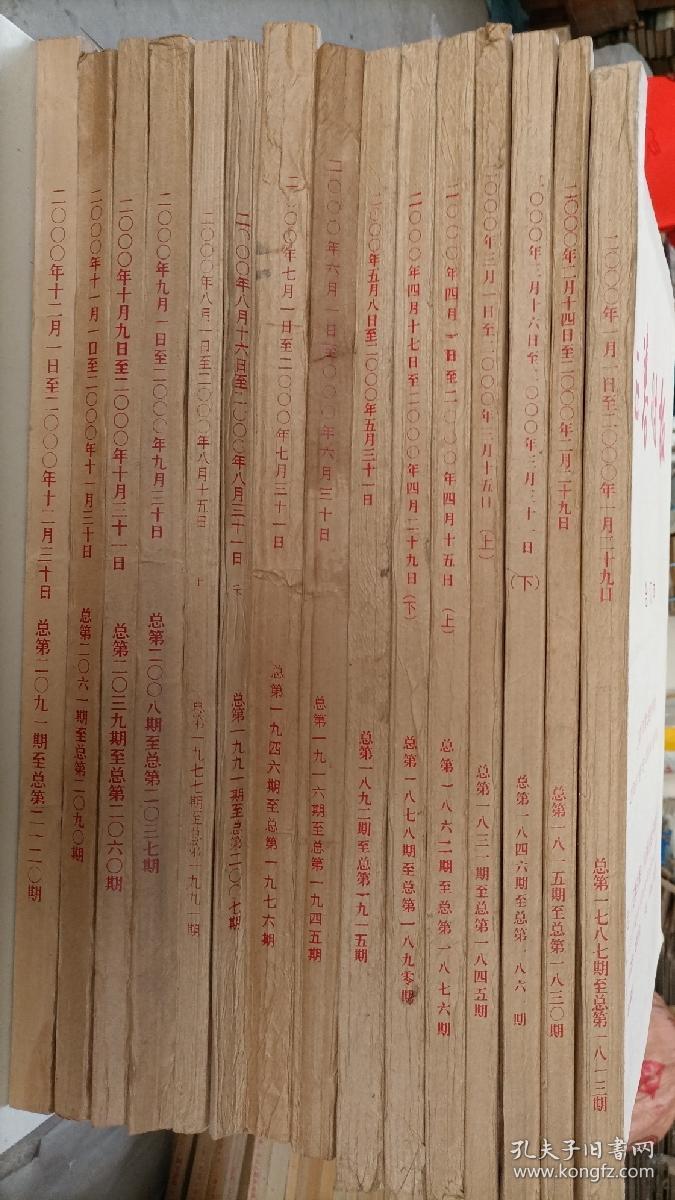 二〇〇〇年十二月一日至二〇〇〇年十二月三十日 总第二〇九一期至总第二一二〇期
二〇〇〇年十一月一日至二〇〇〇年十一月三十日 总第二〇六一期至总第二〇九〇期
二〇〇〇年十月九日至二〇〇〇年十月三十一日 总第二〇三九期至总第二〇六〇期
二〇〇〇年九月一日至二〇〇〇年九月三十日 总第二〇〇八期至总第二〇三七期
二〇〇〇年八月一日至二〇〇〇年八月十五日 上 总第一九七七期至总第一九九一期
二〇〇〇年八月十六日至二〇〇〇年八月三十一日 总第一九九一期至总第二〇〇七期
二〇〇〇年七月一日至二〇〇〇年七月三十一日 总第一九四六期至总第一九七六期
二〇〇〇年六月一日至二〇〇〇年六月三十日 总第一九一六期至总第一九四五期
二〇〇〇年五月八日至二〇〇〇年五月三十一日 总第一八九二期至总第一九一五期
二〇〇〇年四月十七日至二〇〇〇年四月二十九日(下) 总第一八七八期至总第一八九零期
二〇〇〇年四月一日至二〇〇〇年四月十五日(上) 总第一八六二期至总第一八七六期
〇〇〇年三月一日至二〇〇〇年三月十五日(上) 总第一八三一期至总第一八四五期
〇〇〇年三月十六日至二〇〇〇年三月三十一日(下) 总第一八四六期至总第一八六 期
二〇〇〇年二月十四日至二〇〇〇年二月二十九日 总第一八一五期至总第一八三〇期
二〇〇〇年一月一日至二〇〇〇年一月二十九日 总第一七八七期至总第一八一三期
孔夫子旧书网
www.kongfz.com